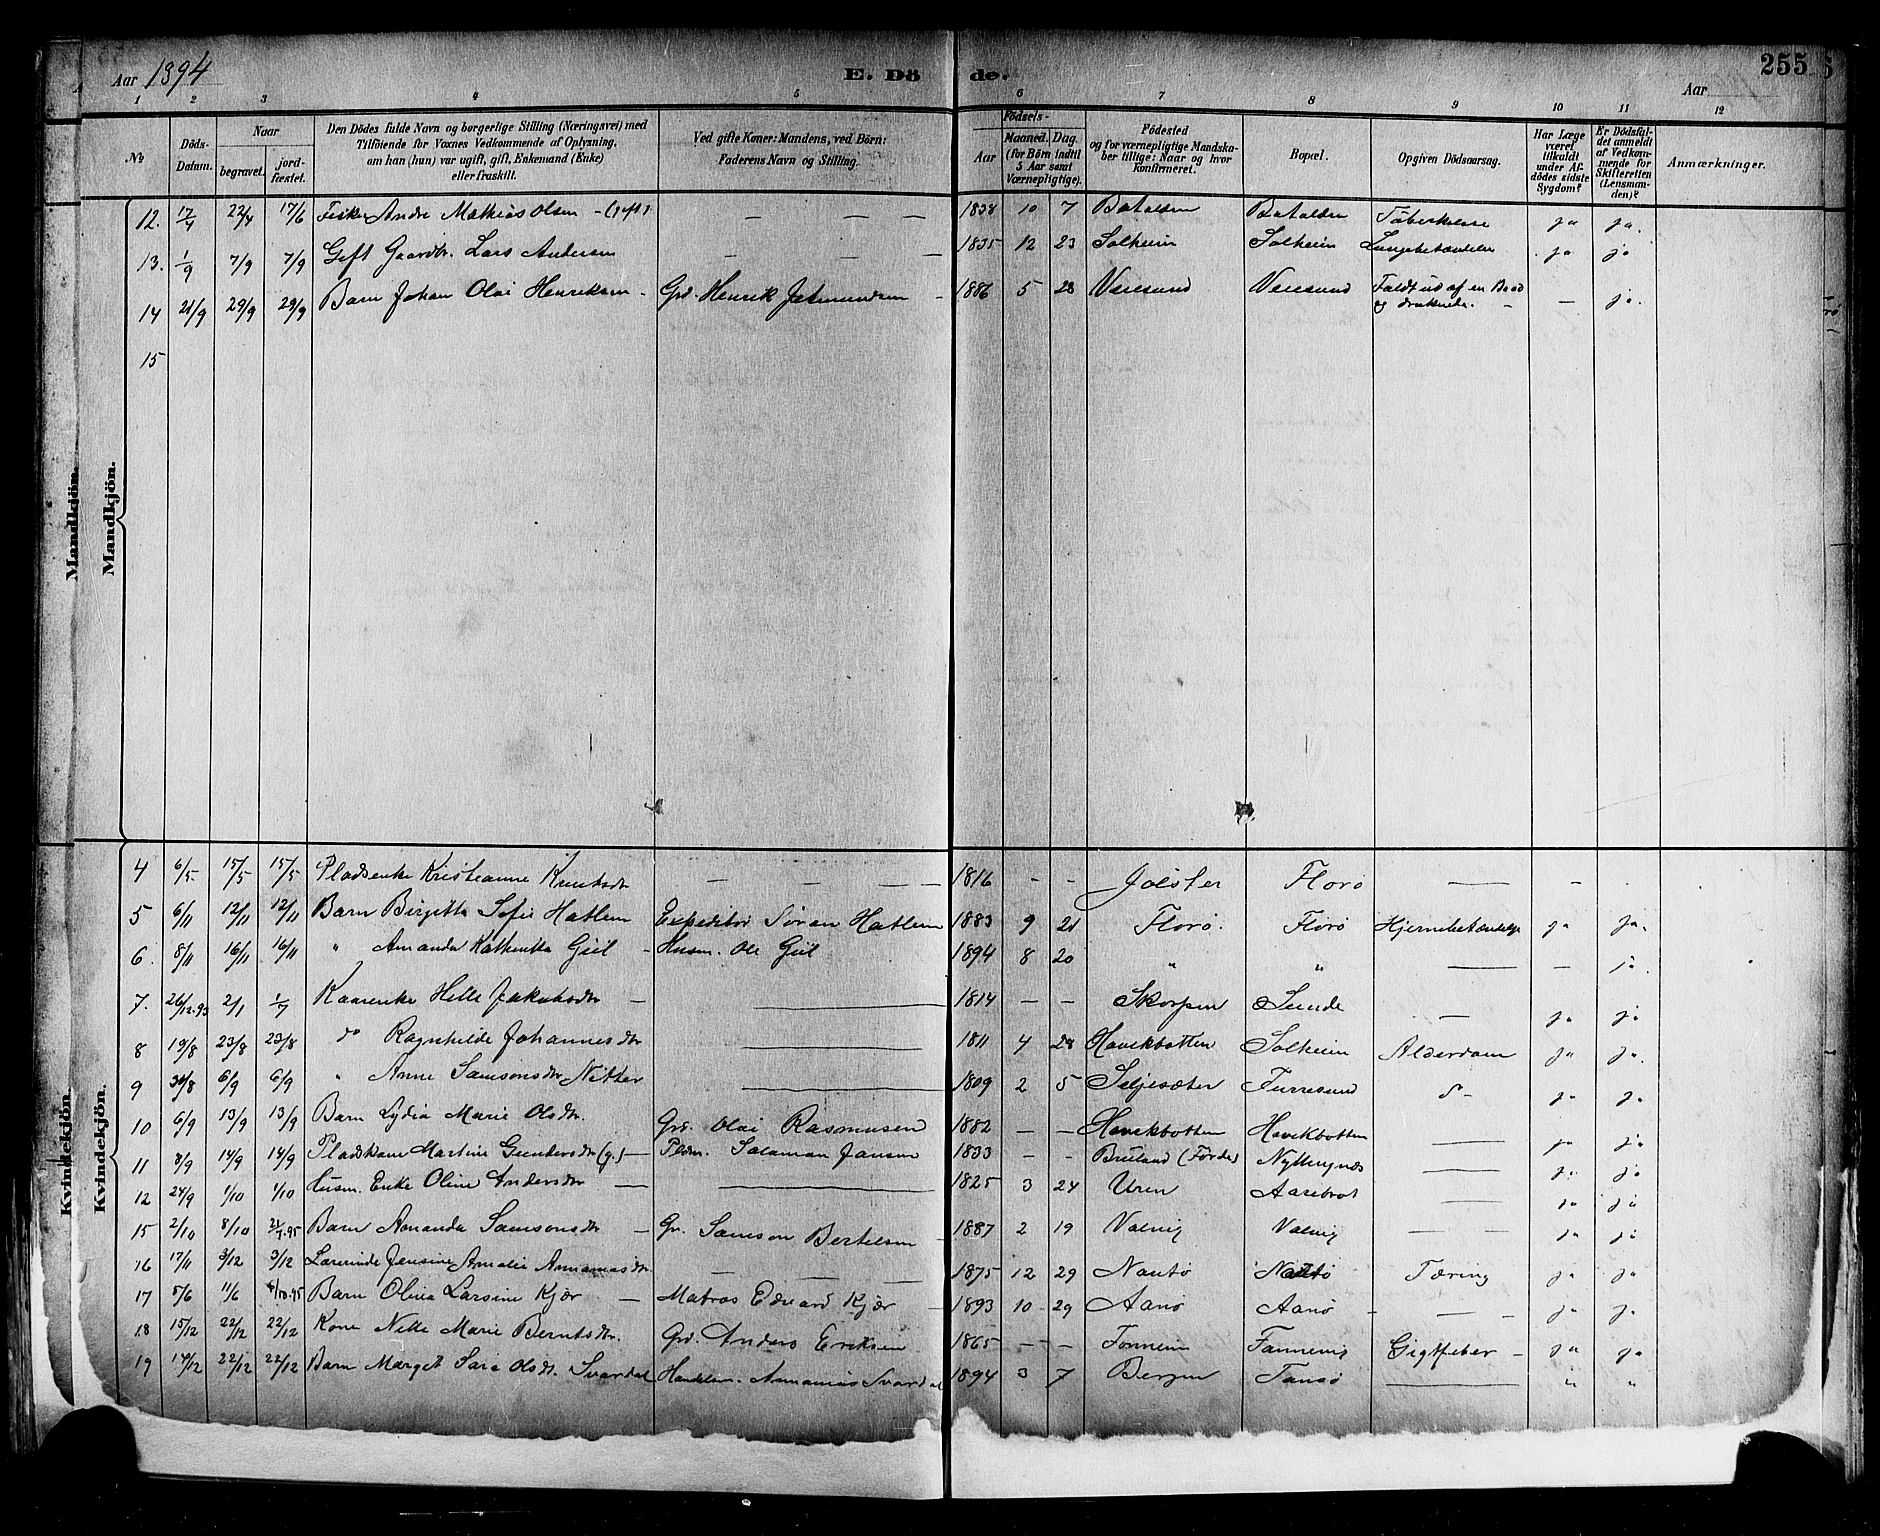 Aar 1894 E. Döde. Aar 255
1 2 3 4 5 6 7 8 9 10 11 12
No Döds-Datum. Naar begravet. jord-fæstet. Den Dödes fulde Navn og borgerlige Stilling (Næringsvei) med Tilföiende for Voxnes Vedkommende af Oplysning, om han (hun) var ugift, gift, Enkemand (Enke) eller fraskilt. Ved gifte Koner: Mandens, ved Börn: Faderens Navn og Stilling. Födsels- Aar Maaned. Dag. (for Börn indtil 5 Aar samt Værnepligtige). Födested og for værnepligtige Mandskaber tillige: Naar og hvor konfirmeret. Bopæl. Opgiven Dödsaarsag. Har Læge været tilkaldt under Afdödes sidste Sygdom? Er Dödsfaldet anmeldt af Vedkommende for Skifteretten (Lensmanden)? Anmærkninger.
Mandkjön.
12. 17/4 22/4 17/6 Fisker Andre Mathias Olsen - (gift) — — — 1838 10 7 Batalden Batalden Tuberkulose ja ja.
13. 1/9 7/9 7/9 Gift Gaardbr. Lars Andersen — — — 1835 12 23 Solheim Solheim Lungebetændelse ja ja
14 21/9 29/9 29/9 Barn Johan Olai Henriksen - Grd. Henrik - 1886 5 28 Varesund Varesund Faldt ud af en Baad og druknede. - — ja.
15
Kvindekjön.
4 6/5 15/5 15/5 Pladsenke Kristianne Knutsdtr — — — — 1816 - - Jölster Florö — -
5 6/11 12/11 12/11 Barn Birgitta Sofie Hatlem Expeditör Søran Hatlem 1883 9 21 Florö. Florö Hjernebetændelse ja ja.
6. 8/11 16/11 16/11 " Amanda Kathinka Giil - Husm. Ole Giil 1894 8 20 " " — — ja.
7. 26/12.93 2/1 1/7 Kaarenke Helle Jakobsdtr — — 1814 - - Skorpen Sunde — ja ja
8 19/8 23/8 23/8 do Ragnhilde Johannesdtr — 1811 4 28 Havikbotten Solheim Alderdom ja ja.
9 30/8 6/9 6/9 " Anne Samsonsdtr Nitter — 1809 2 5 Seljesæter Furresund ja ja
10 6/9 13/9 13/9 Barn Lydia Marie Olsdtr. Grd. Olai Rasmusen 1882 - - Havikbotten Havikbotten — ja ja
11 8/9 14/9 14/9 Pladskone Martine Gundersdtr (g.) — Pldm. Salamon Jansen 1833 - - Bruland (Förde) — ja ja
12 24/9 1/10 1/10 Husm. Enke Oline Andersdtr — — 1825 3 24 Uren Aarebrot — ja ja
15 2/10 8/10 21/4.95 Barn Amanda Samsonsdtr — Gr. Samson Bertelsen - 1887 2 19 Valvig Valvig — - ja ja
16 17/11 3/12 3/12 Lærerinde Jensine Amalie Annaniasdtr. — — — 1875 12 29 Nautö Nautö Tæring ja ja
17 5/6 11/6 Barn Olina Larsine Kjær — Matros Edvard Kjær - 1893 10 29 Aanö Aanö - — - ja ja.
18 15/12 22/12 22/12 Kone Nille Marie Berntsdtr. Grd. Anders Eriksen 1865 - - Fannevig Gigtfeber - ja ja
19 14/12 22/12 22/12 Barn Marget Sara Olsdtr. Svardal Handelsm. Annanias Svardal 1894 3 7 Bergen Tansö — " "